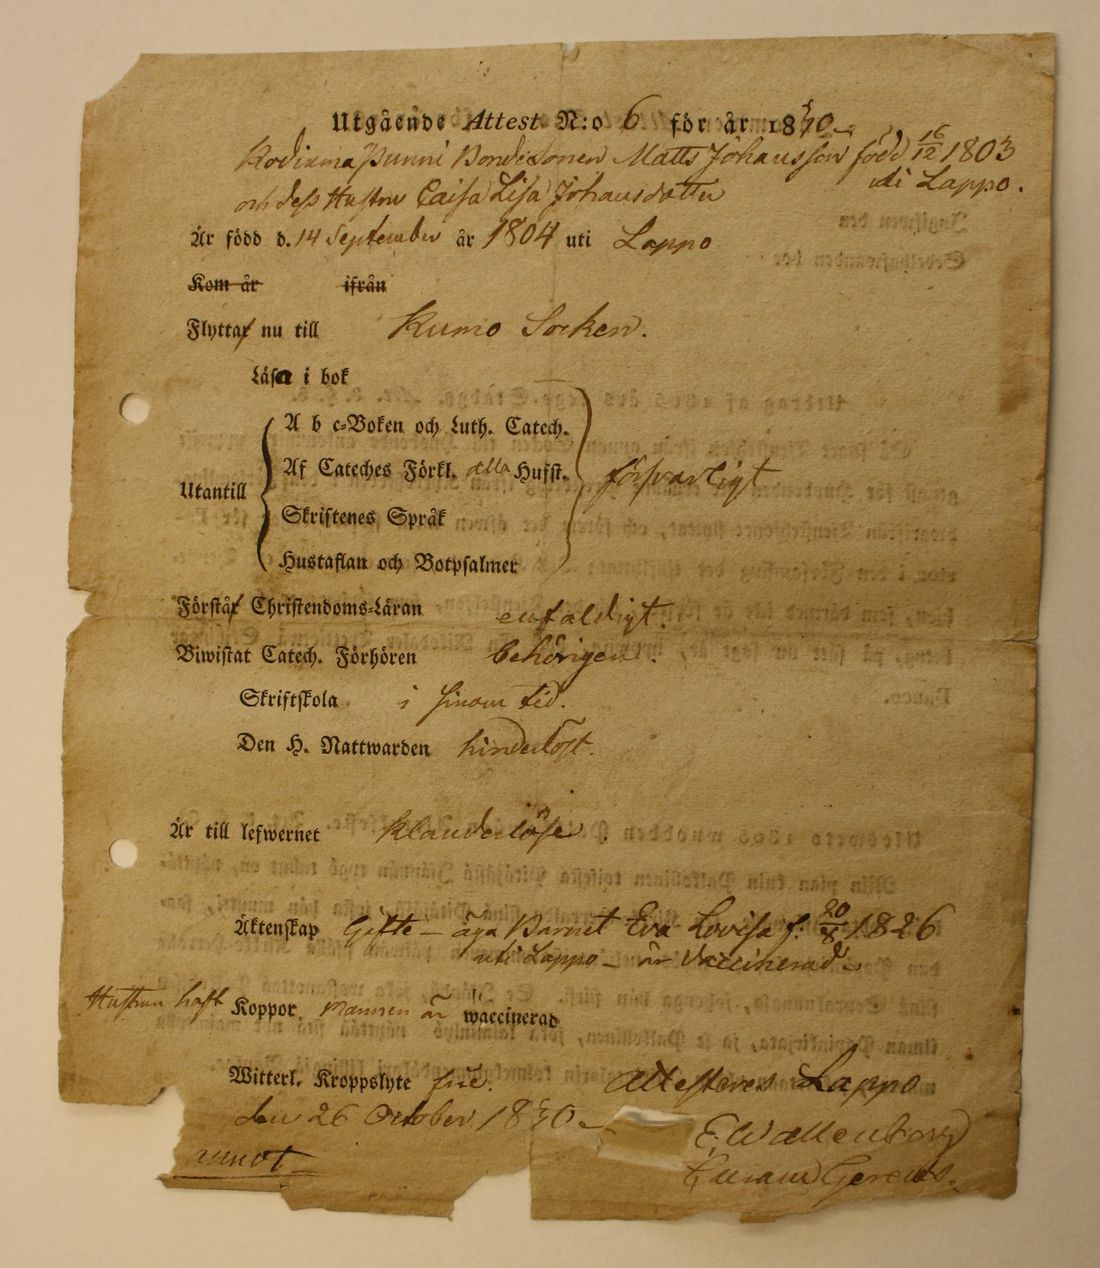 Utgående Attest N:o 6 för år 1830
Bondesonen Matts Johansson född 16/12 1803
uti Lappo.
och dess Hustru Caisa Lisa Johansdotter
Är född d. 14 September år 1804 uti Lappo
Kom år ifrån
Flyttar nu till Kumo Socken.
Läsa i bok
A b c-Boken och Luth. Catech.
Af Cateches Förkl. alla Hufst.
Utantill försvarligt
Skriftenes Språk
Hustaflan och Botpsalmer
Förstår Christendoms-Läran enfaldigt.
Biwistat Catech. Förhören behörigen.
Skriftskola i sinom tid.
Den H. Nattwarden hinderlöst.
Är till lefwernet klanderlöse.
Äktenskap Gifte – äga Barnet Eva Lovisa f. 20/8 1826
uti Lappo – är vaccinerad
Hustrun haft Koppor mannen är waccinerad
Witterl. Kroppslyte frie. Attesteres Lappo
den 26 October 1830
E. Wallenberg